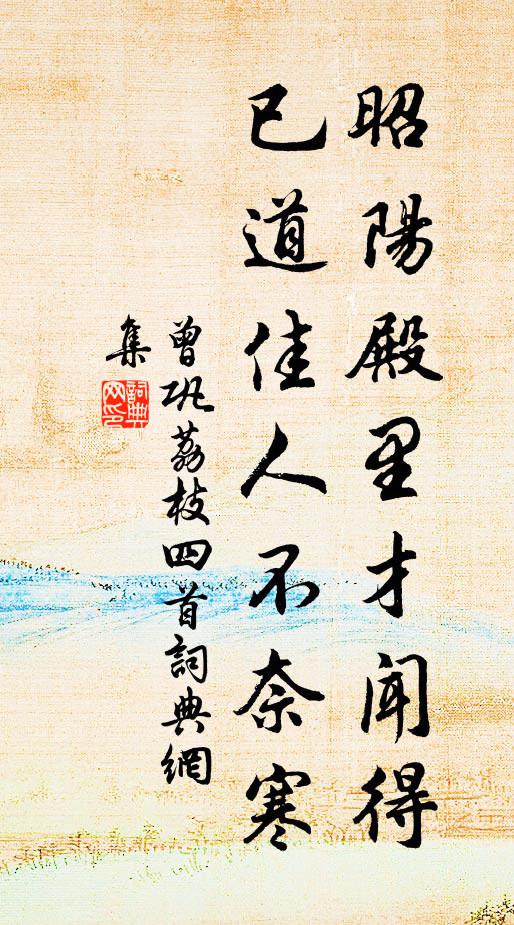 昭陽殿里才聞得
已道佳人不奈寒
曾巩荔枝四首詞典網
集
詞典
网印